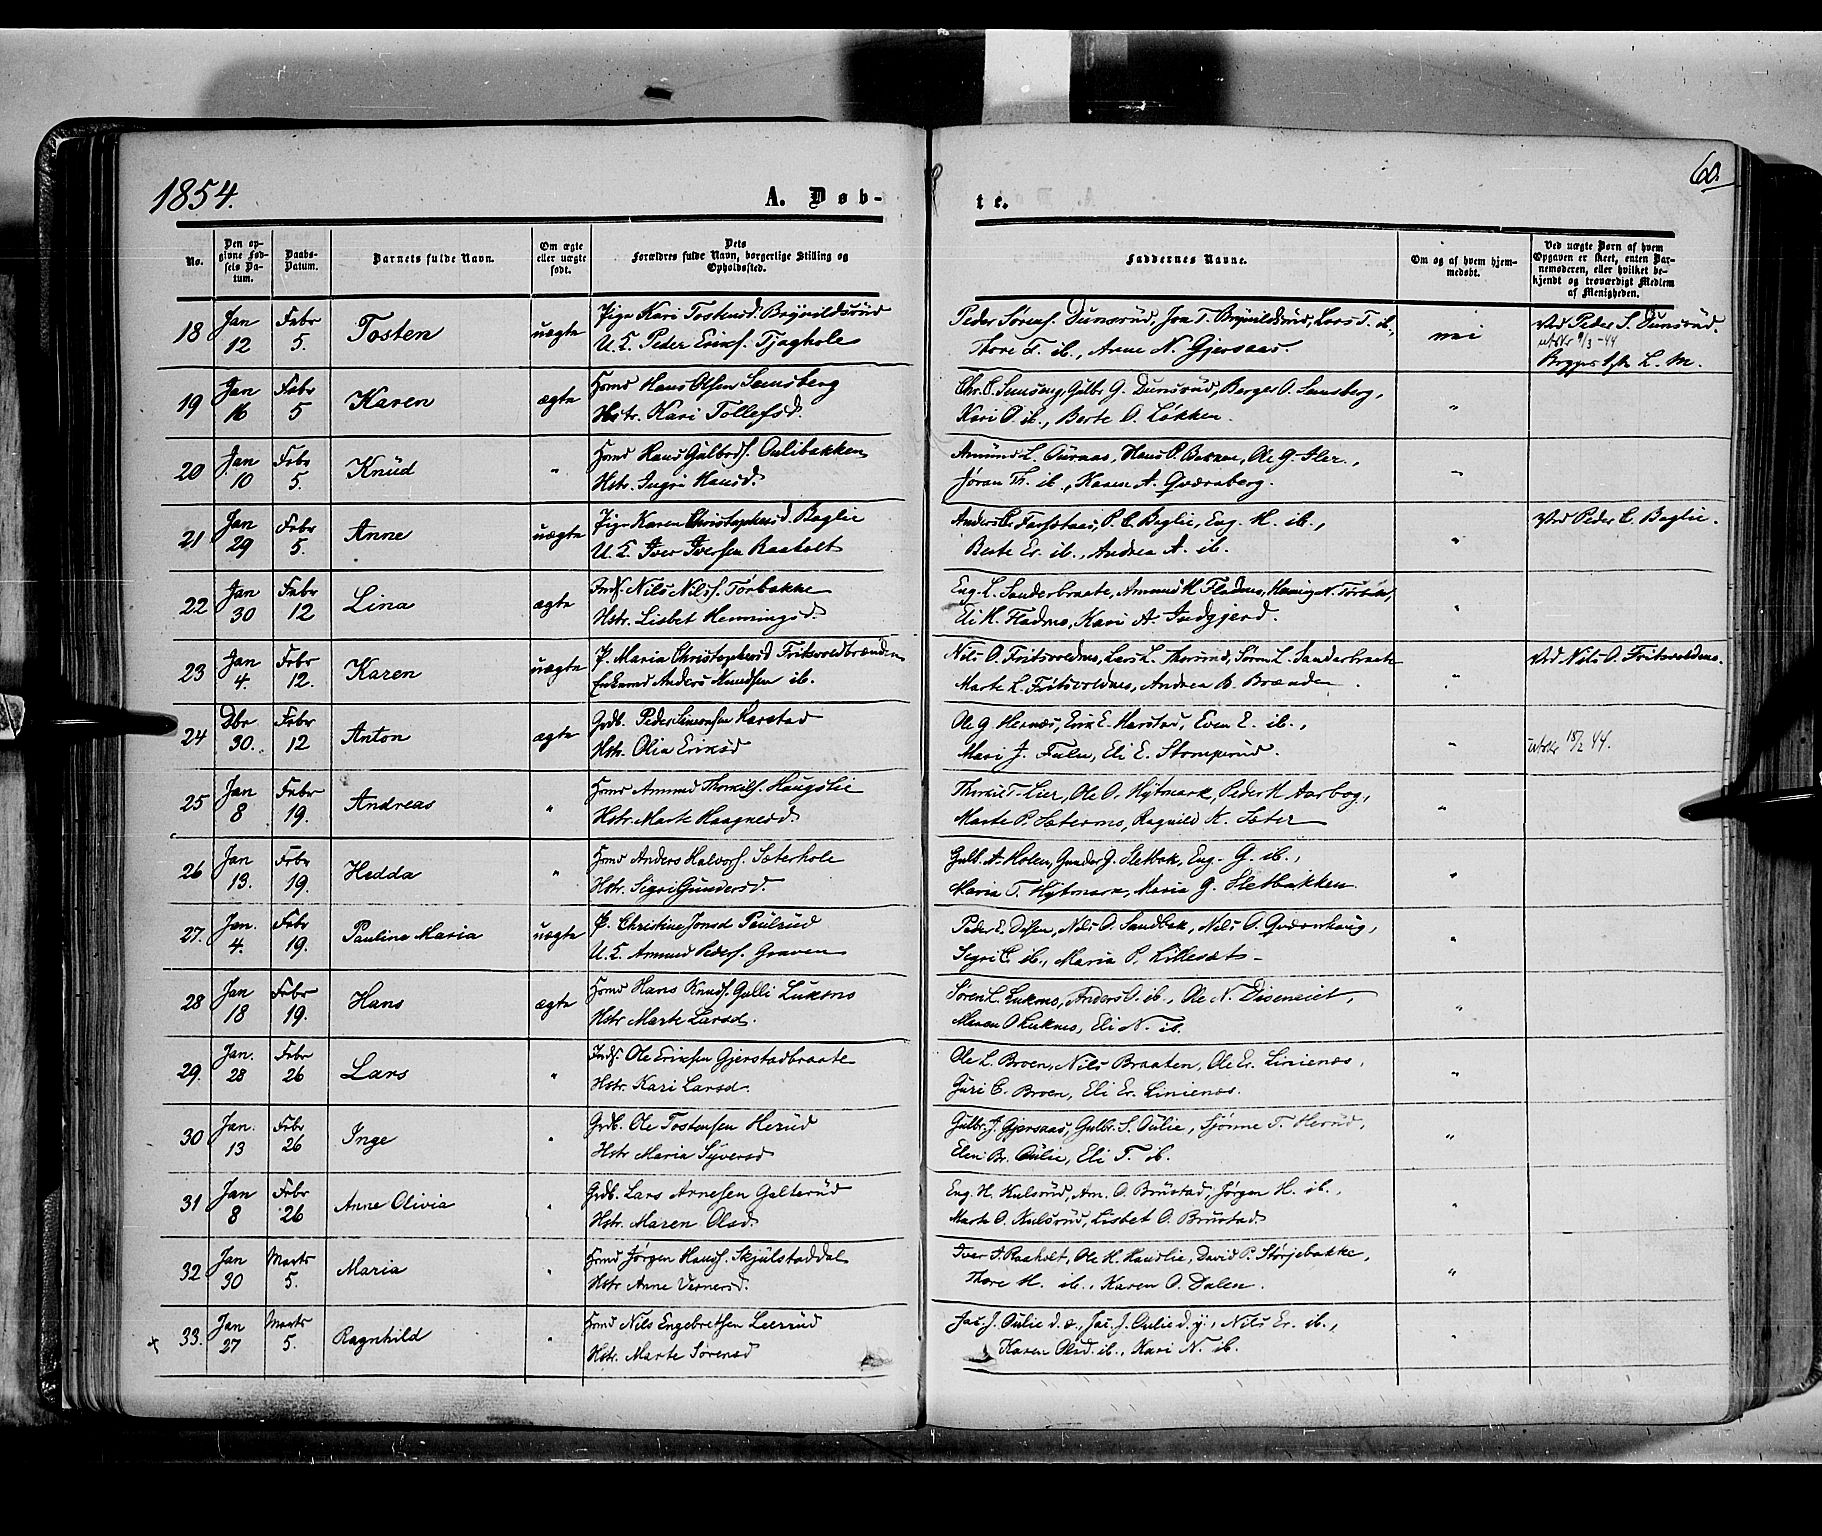 1854.
A. Døb-
te.
60.
No.
Den op-
givne Fød-
sels Da-
tum.
Daabs-
Datum.
Barnets fulde Navn.
Om ægte
eller uægte
født.
Dets
Forældres fulde Navn, borgerlige Stilling og
Opholdssted.
Faddernes Navne.
Om og af hvem hjem-
medøbt.
Ved uægte Børn af hvem
Opgaven er skeet, enten Bar-
nemoderen, eller hvilket be-
kjendt og troværdigt Medlem
af Menigheden.
18 Jan 12 Febr 5. Tosten uægte Pige Kari Tostensd. Brynildsrud
U. K. Peder Eriks. Tjaghole
Peder Sørens. Dunsrud, Jon T. Brynildsrud, Lars T. ib.,
Thore T. ib., Anne N. Gjersaas.
nei
Ved Peder S. Dunsrud.
utskr 9/3-44
19 Jan 16 Febr 5 Karen ægte Hmd Hans Olsen Semsberg
Hstr. Kari Tollefsd.
Gulbr. G. Dunsrud, Berger O. Semsberg,
Kari O. ib., Berte O. Løkken.
"
20 Jan 10 Febr 5. Knud " Hmd Hans Gulbrds. Oulibakken
Hstr. Ingri Hansd.
Amund L. Ouraas, Hans P. Bakken, Ole G. Ller,
Jøran Th. ib., Karen A. Qværnberg.
"
21 Jan 29 Febr 5. Anne uægte Pige Karen Christophersd. Baglie
U. K. Iver Iversen Raaholt
P. C. Baglie, Eng. H. ib.,
Berte Er. ib., Andrea A. ib.
"
Ved Peder C. Baglie.
22 Jan 30 Febr 12 Lina ægte Inds. Nils Nils. Tørbakke
Hstr. Lisbet Henningsd.
Eng. L. Sanderbraate, Amund H. Fladmo,
Eli H. Fladmo, Kari A. Indgjerd.
"
23 Jan 4. Febr 12. Karen uægte P. Maria Christophersd Fritsvoldbrænden
Enkemd Anders Knudsen ib.
Nils O. Fritsvoldmo, Lars L. Thorsrud, Søren L. Sanderbraate
Marte L. Fritsvoldmo, Andrea B. Brænden.
"
Ved Nils O. Fritsvoldmo.
24 Dbr 30. Febr 12 Anton ægte Grdb. Peder Simensen Harstad
Hstr. Olia Eriksd
Ole G. Hernæs, Erik E. Harstad, Even E. ib.,
Mari J. Fulu, Eli E. Stomperud.
"
utskr 15/2 44.
25 Jan 8 Febr 19. Andreas " Hmd Amund Thorkils. Haugslie
Hstr. Marte Haagensd.
Thorkil T. Lier, Ole O. Hytmark, Peder H. Aarbog,
Marte P. Sætermo, Ragnild K. Sæter
"
26 Jan 13. Febr 19. Hedda " Hmd Anders Halvors. Sæterhole
Hstr. Sigri Gundersd.
Gulb. A. Holen, Gunder G. Sletbak, Eng. G. ib.,
Maria T. Hytmark, Maria G. Sletbakken
"
27. Jan. 4. Febr 19. Pauline Maria uægte P. Christine Jonsd Paulsrud
U. K. Amund Peders. Graven
Peder E. Disen, Nils O. Sandbak, Nils O. Qværnhaug,
Sigri C. ib., Maria P. Lillesæt
"
28 Jan 18 Febr 19. Hans ægte Hmd Hans Knuds. Gulli Lukmo
Hstr Marte Larsd.
Søren L. Lukmo, Anders O. ib., Ole N. Diseneiet,
Maren O Lukmo, Eli N. ib.
"
29. Jan. 28 Febr 26 Lars " Inds. Ole Eriksen Gjerstadbraate
Hstr. Kari Larsd.
Ole L. Broen, Nils Braaten, Ole Er. Linienæs,
Guri C. Broen, Eli Er. Linienæs.
"
30 Jan. 13 Febr 26 Inge " Grdb. Ole Tostensen Herud
Hstr Maria Syversd
Gulbr. J. Gjersaas, Gulbr. S. Oulie, Sjønne T. Herud,
Eleni Br. Oulie, Eli T. ib.
"
31 Jan 8 Febr 26 Anne Olivia " Grdb. Lars Arnesen Galterud
Hstr. Maren Olsd.
Eng. H. Kulsrud, Am. O. Brustad, Jørgen H. ib.,
Marte O. Kulsrud, Lisbet O. Brustad
"
32 Jan 30 Marts 5. Maria " Hmd Jørgen Hans. Skjulstaddal
Hstr Anne Vernersd.
Iver I. Raaholt, Ole H. Haudlie, David P. Størjebakke,
Thore H. ib., Karen O. Dalen.
"
33. Jan 27 Marts 5. Ragnhild " Hmd Nils Engebretsen Leerud
Hstr. Marte Sørensd
Jac. J. Oulie d. æ., Jac. J. Oulie d. y., Nils Er. ib.,
Karen Olsd. ib., Kari N. ib.
"